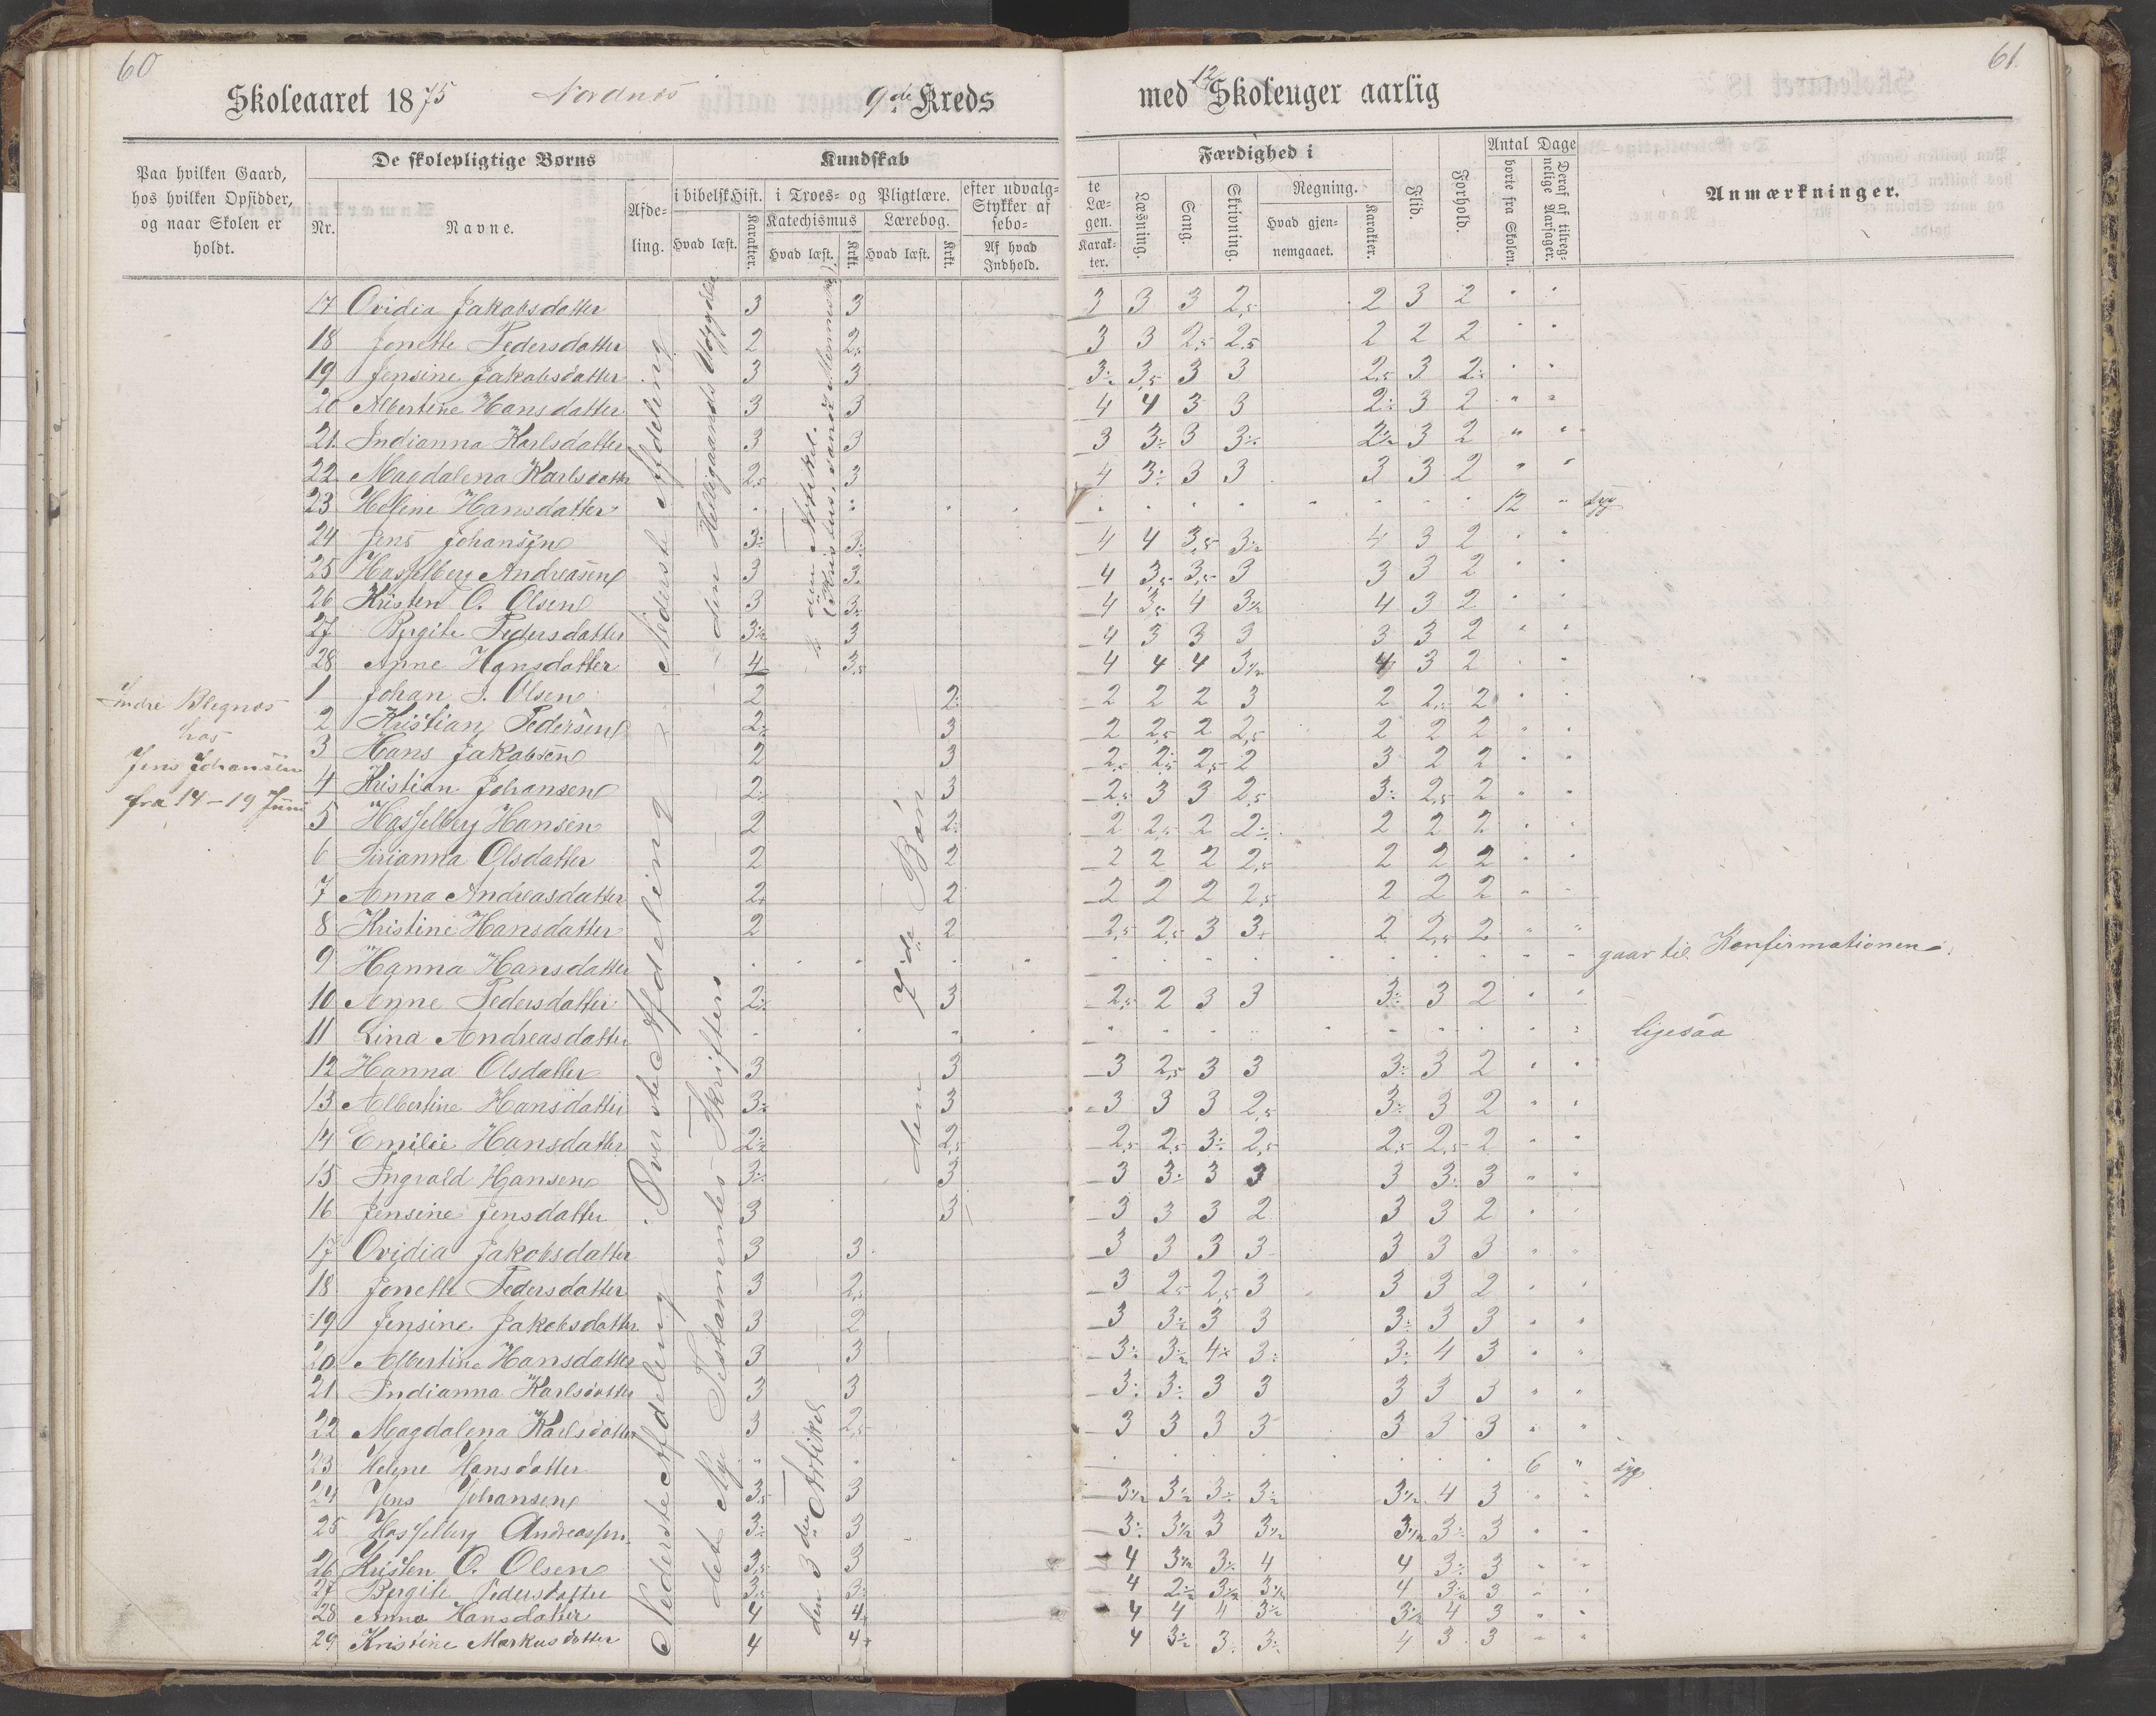 60
61
Skoleaaret 1875 Nordnes 9de Kreds med 12 Skoleuger aarlig
Paa hvilken Gaard, hos hvilken Opsidder, og naar Skolen er holdt.
De skolepligtige Børns
Nr.
Navne.
Afdeling.
Kundskab
i bibelsk Hist.
Hvad læst.
Karakter.
i Troes- og Pligtlære.
Katechismus
Hvad læst.
Krkt.
Lærebog.
Hvad læst.
Krkt.
efter udvalg-
Stykker af
sebo-
Af hvad Indhold.
te
Læ-
gen.
Karak-
ter.
Færdighed i
Læsning.
Sang.
Skrivning.
Regning.
Hvad gjen-
nemgaaet.
Karakter.
Flid.
Forhold.
Antal Dage
borte fra Skolen.
Deraf af tilreg-
nelige Aarsager.
Anmærkninger.
Nederste Afdeling
17 Ovidia Jakobsdatter 3 3 3 3 3 2,5 2 3 2
18 Jonette Pedersdatter 2 2,5 3 3 2,5 2,5 2 2 2
19 Jensine Jakobsdatter 3 3 3÷ 3,5 3 3 2,5 3 2÷
20 Albertine Hansdatter 3 3 4 4 3 3 2÷ 3 2
21 Indianna Karlsdatter 3 3 3 3÷ 3 3÷ 2½ 3 2
22 Magdalena Karlsdatter 2,5 3 4 3÷ 3 3 3 3 2
23 Helene Hansdatter 12 " syg
24 Jens Johansen 3÷ 3÷ 4 4 3,5 3½ 4 3 2
25 Hasselberg Andreasen 3 3 4 3,5 3,5 3 3 3 2
26 Kristen O. Olsen 3 3÷ 4 3,5 4 3½ 4 3 2
27 Bergite Pedersdatter 3½ 3 4 3 3 3 3 3 2
28 Anne Hansdatter 4 3,5 4 4 4 3½ 4 3 2
Indre Blegnes
hos
Jens Johansen
fra 14-19 Juni
Øverste Afdeling
det Nye Testamentes Skrifter
den 7de Bøn
1 Johan J. Olsen 2 2÷ 2 2 2 3 2 2,5 2
2 Kristian Pedersen 2÷ 3 2 2,5 2 2,5 2 2 2
3 Hans Jakobsen 2 3 2,5 2,5 2,5 2 3 2 2
4 Kristian Johansen 2÷ 3 2,5 3 3 2,5 3÷ 2,5 2
5 Hasselberg Hansen 2 2÷ 2 2,5 2 2÷ 2 2 2
6 Sirianna Olsdatter 2 2 2 2 2 2,5 2 2 2
7 Anna Andreasdatter 2+ 2 2 2 2 2,5 2 2 2
8 Kristine Hansdatter 2 2 2,5 2,5 3 3+ 2 2,5 2
9 Hanna Hansdatter gaar til Konfirmationen
10 Anne Pedersdatter 2÷ 3 2,5 2 3 3 3÷ 3 2
11 Lina Andreasdatter ligesaa
12 Hanna Olsdatter 3 3 3 2,5 3 3 3÷ 3 2
13 Albertine Hansdatter 3÷ 3 3 3 3 2,5 3÷ 3 2
14 Emilie Hansdatter 2½ 2,5 2,5 2,5 3÷ 2,5 2,5 2,5 2
15 Ingvald Hansen 3÷ 3 3 3÷ 3 3 3 3÷ 3
16 Jensine Jensdatter 3 3 3 3 3 2 3 3 2
Nederste Afdeling
den 3die Artikel
17 Ovidia Jakobsdatter 3 3 3 3 3 3 3 3 3
18 Jonette Pedersdatter 3 2,5 3 2,5 2,5 3 3 3 2
19 Jensine Jakobsdatter 3 2 3 3½ 3 3 3÷ 3 3
20 Albertine Hansdatter 3 3 3÷ 3½ 4÷ 3÷ 3÷ 4 3
21 Indianna Karlsdatter 3 3 3÷ 3÷ 3 3 3 3 3
22 Magdalena Karlsdatter 3 2,5 3 3 3 3 3 3 3
23 Helene Hansdatter 6 " syg
24 Jens Johansen 3,5 3 3½ 3½ 3÷ 3½ 3½ 4 3
25 Hasselberg Andreassen 3÷ 3 3÷ 3½ 3 3½ 3½ 3÷ 3
26 Kristen O. Olsen 3,5 3 4 3½ 3÷ 4 4 3÷ 3
27 Bergite Pedersdatter 3,5 3÷ 4 2½ 3½ 3½ 4 3½ 3
28 Anna Hansdatter 4 4 4 4 4 3½ 3½ 4 3
29 Kristine Markusdatter 4 4+ 4 3½ 3÷ 3÷ 4 3 3